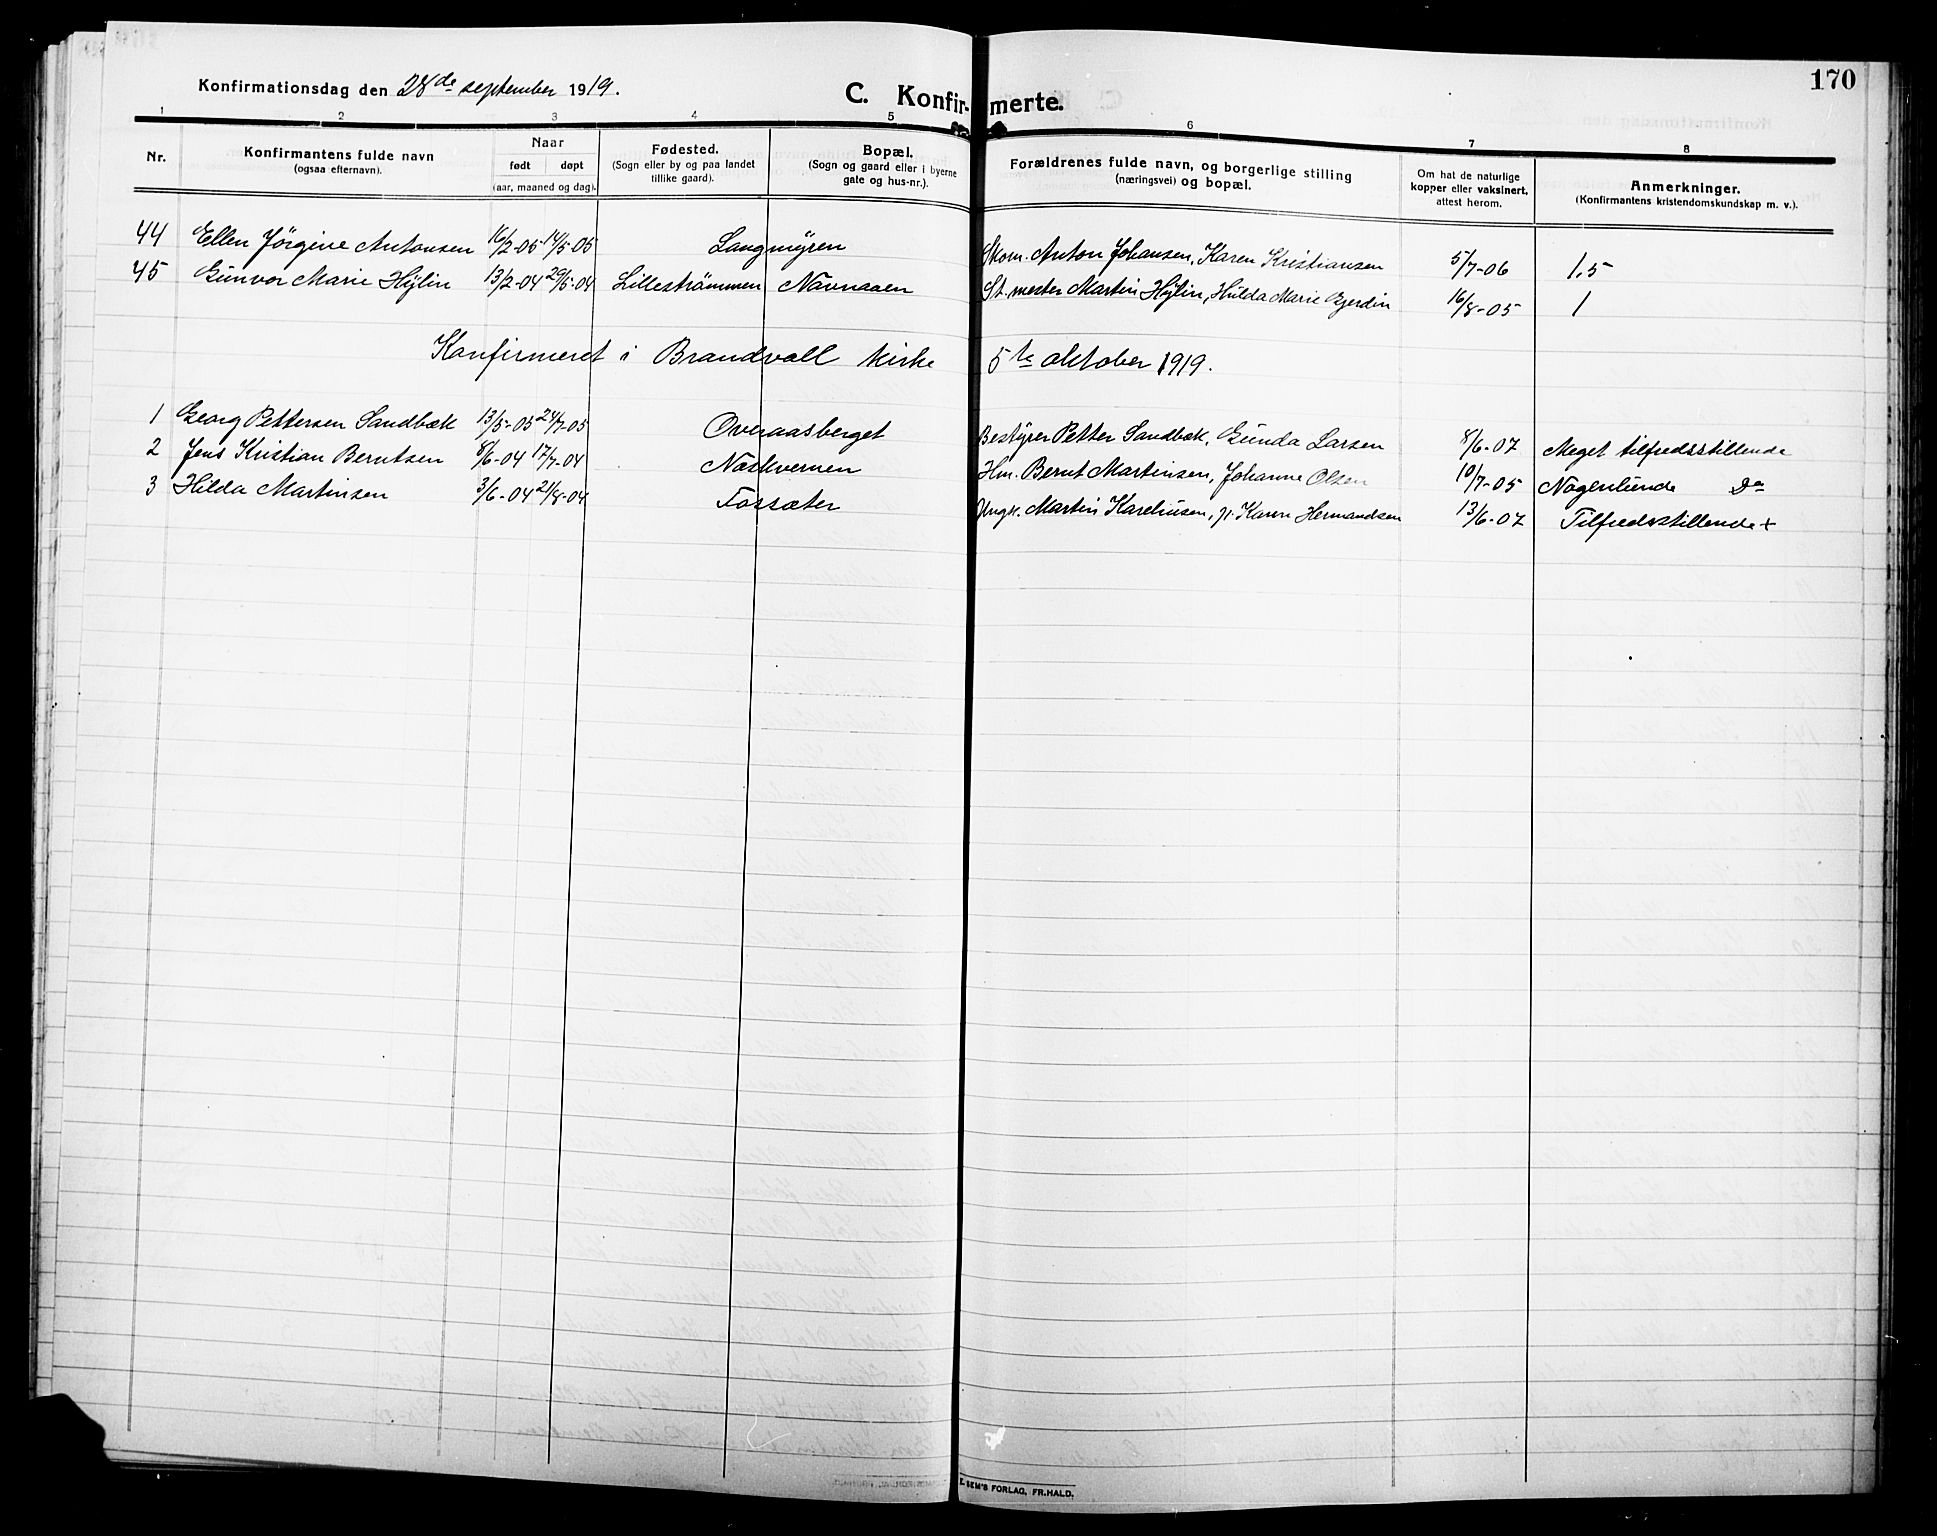 170
Konfirmationsdag den 28de september 1919.
C. Konfirmerte.
1 2 3 4 5 6 7 8
Nr.
Konfirmantens fulde navn
(ogsaa efternavn).
Naar
født døpt
(aar, maaned og dag).
Fødested.
(Sogn eller by og paa landet
tillike gaard).
Bopæl.
(Sogn og gaard eller i byerne
gate og hus-nr.).
Forældrenes fulde navn, og borgerlige stilling
(næringsvei) og bopæl.
Om hat de naturlige
kopper eller vaksinert,
attest herom.
Anmerkninger.
(Konfirmantens kristendomskundskap m. v.).
44 Ellen Jørgine Antonsen 16/2-05 14/5-05 Langmyren Skom. Anton Johansen, Karen Kristiansen 5/7-06 1.5
45 Gunvor Marie Hylin 13/2-04 29/5-04 Lillestrømmen Navnaaen St.mester Martin Hylin, Hulda Marie Gjerdin 16/8-05 1
Konfirmeret i Brandvall kirke 5te oktober 1919.
1 Georg Pettersen Sandbæk 13/5-05 24/7-05 Overaasberget Bestyrer Petter Sandbæk, Gunda Larsen 8/6-07 Meget tilfredsstillende
2 Jens Kristian Berntsen 8/6-04 17/7-04 Næskvernen Hm. Bernt Martinsen, Johanne Olsen 10/7-05 Nogenlunde Do
3 Hilda Martinsen 3/6-04 21/8-04 Fossæter Ungk. Martin Kareliusen, p. Karen Hermandsen 13/6-07 Tilfredsstillende +
SEM'S FORLAG, FR.HALD.